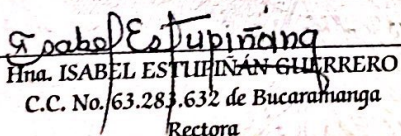 Isabel Estupiñáng
Hna. ISABEL ESTUPIÑÁN GUERRERO
C.C. No. 63.283.632 de Bucaramanga
Rectora